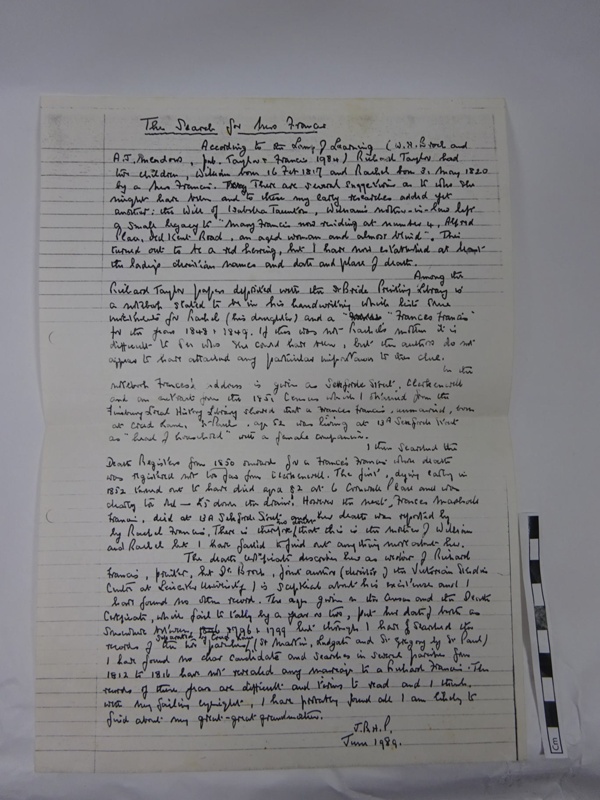 The Search for Mrs Francis
According to the Lamp of Learning (W.H. Brock and
A.J. Meadows, pub. Taylor & Francis 1984) Richard Taylor had
two children, William born 16 Feb 1817 and Rachel born 31 May 1820
by a Mrs Francis. There are several suggestions as to who she
might have been and to them my early researches added yet
another: the will of Isabella Taunton, William's mother-in-law left
a small legacy to "Mary Francis now residing at number 4, Alfred
Place, Old Kent Road, an aged woman and almost blind". This
turned out to be a red herring, but I have now established at least
the lady's christian names and date and place of death.
Among the
Richard Taylor papers deposited with the St Bride Printing Library is
a notebook stated to be in his handwriting which lists some
for Rachel (his daughter) and a "Frances Francis"
for the years 1848 & 1849. If this was not Rachel's mother it is
difficult to see who she could have been, but the authors do not
appear to have attached any particular importance to this clue.
In the
notebook Frances's address is given as Sekforde Street, Clerkenwell
and an extract from the 1851 Census which I obtained from the
Finsbury Local History Library showed that a Frances Francis, unmarried, born
at St Paul, age 52 was living at 13A Sekforde Street
as "head of household" with a female companion.
I then searched the
Death Registers from 1850 onwards for a Frances Francis whose death
was registered not too far from Clerkenwell. The first, dying early in
1852 turned out to have died aged 82 at 6 Cornwall Place and was
clearly too old — £5 down the drain! However the next, Frances
Francis, died at 13A Sekforde Street and her death was reported by
by Rachel Francis. There is therefore that this is the mother of William
and Rachel but I have failed to find out anything more about her.
The death certificate describes her as widow of Richard
Francis, printer, but Dr Brock, joint author (director of the Victorian Studies
Centre at Leicester University) is sceptical about his existence and I
have found no other record. The age given in the Census and the Death
Certificate, which fail to tally by a year or two, put her date of birth as
somewhere between 1796 & 1799 but though I have searched the
records of the two parishes (St Martin, Ludgate and St Gregory by St Paul)
I have found no clear candidate and searches in several parishes from
1812 to 1816 have not revealed any marriage to a Richard Francis. The
records of these years are difficult and to read and I think,
with my failing eyesight, I have probably found all I am likely to
find about my great-great grandmother.
J.R.H.P.
June 1989.